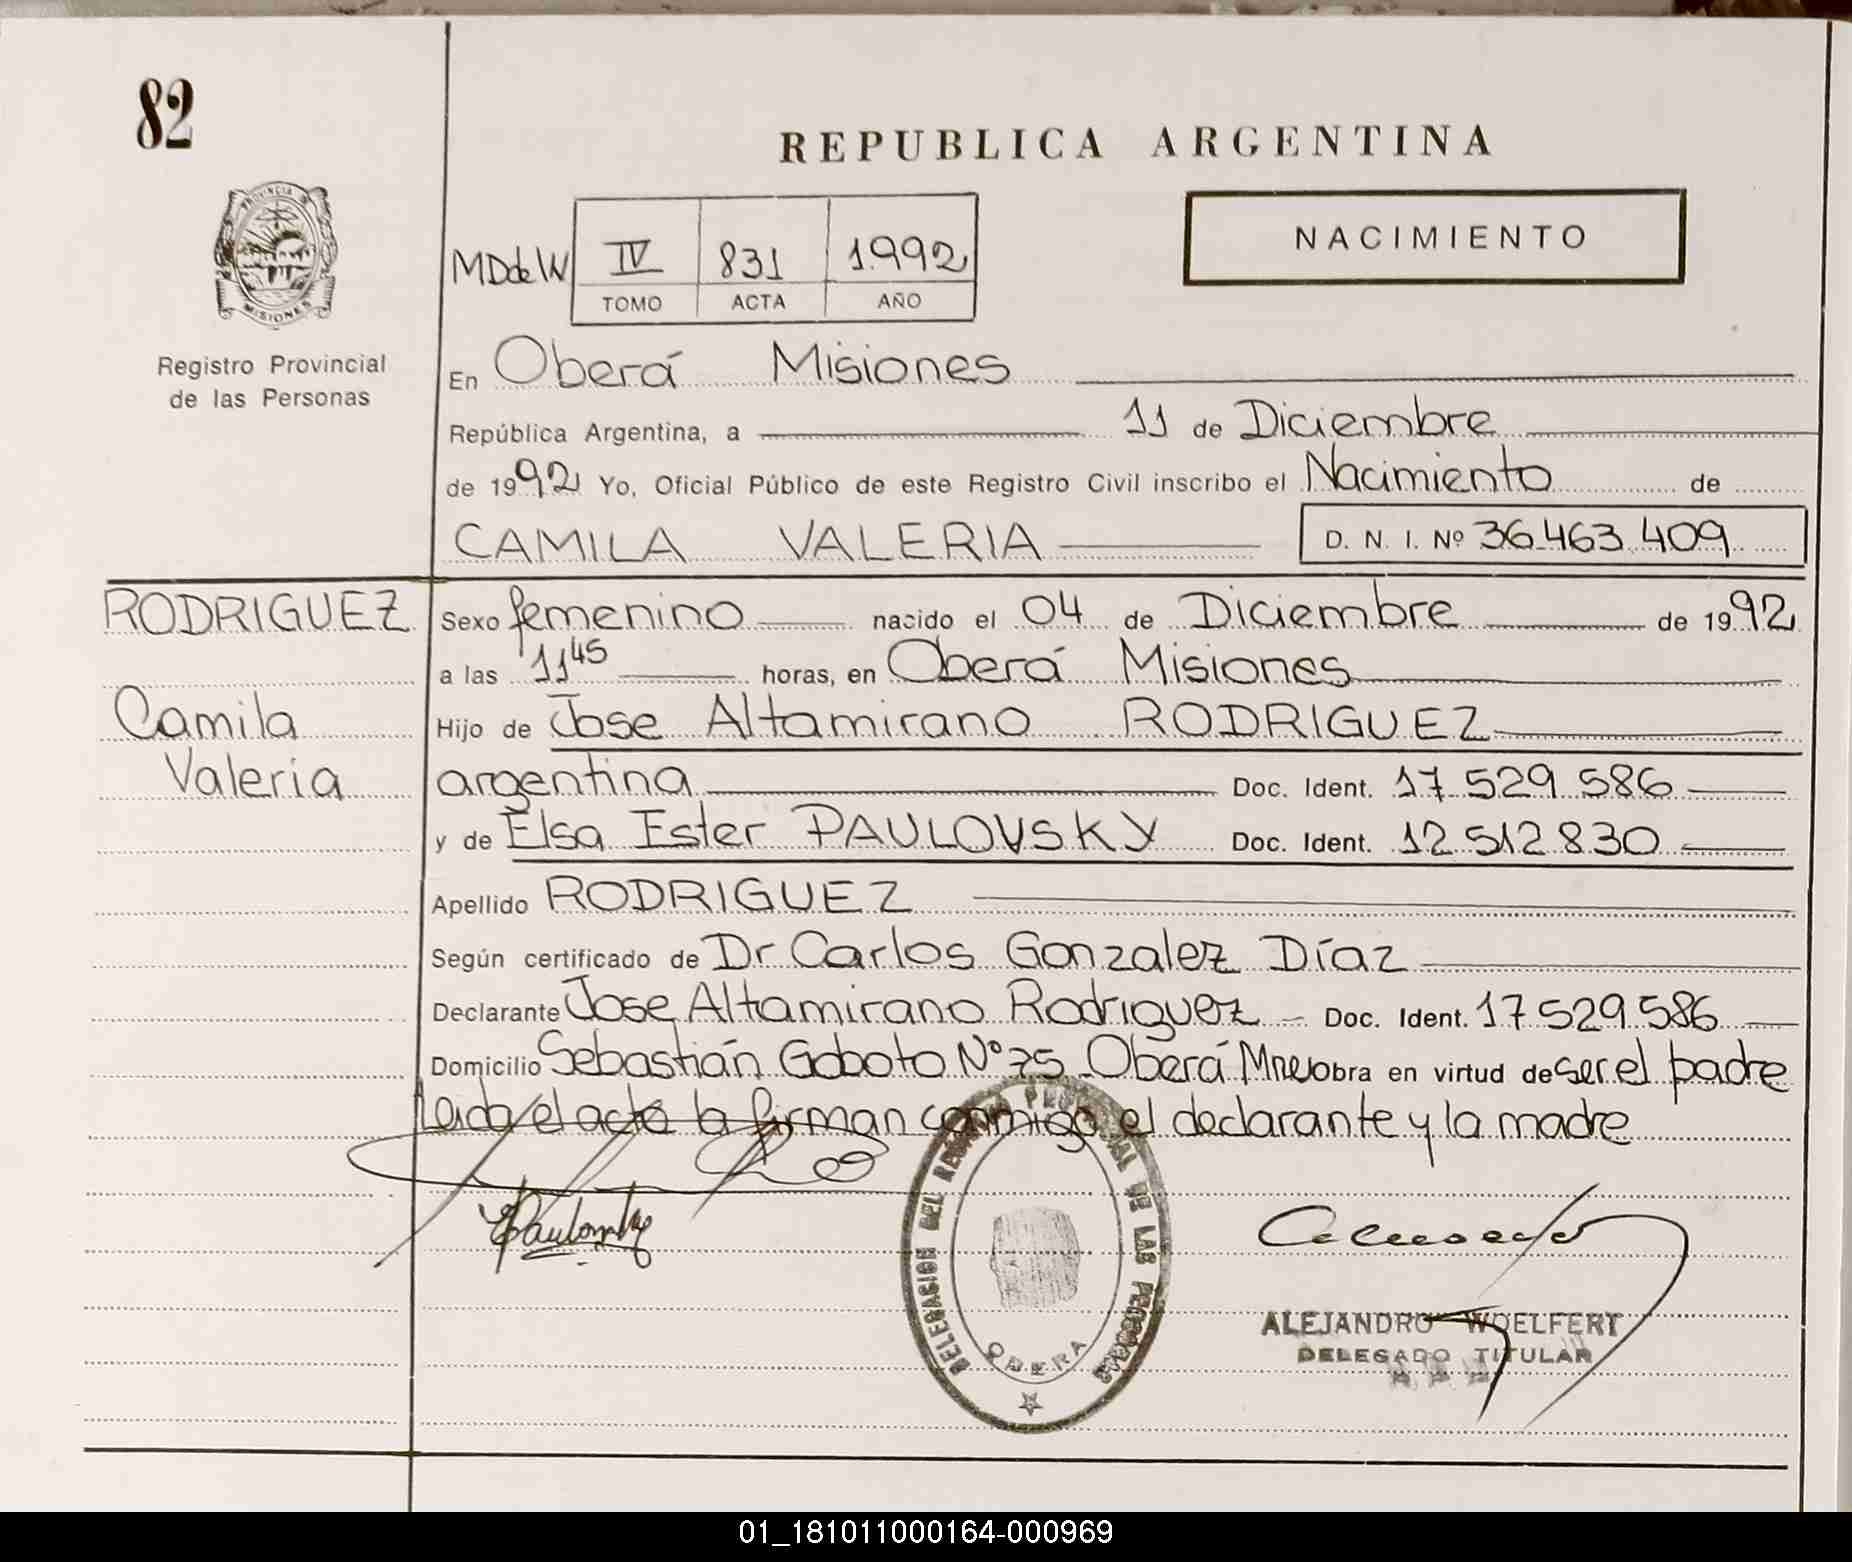 82
REPUBLICA ARGENTINA
PROVINCIA DE
MISIONES
Registro Provincial
de las Personas
MDdeW IV 831 1.992
TOMO ACTA AÑO
NACIMIENTO
En Oberá Misiones
República Argentina, a 11 de Diciembre
de 1992 Yo, Oficial Público de este Registro Civil inscribo el Nacimiento de
CAMILA VALERIA D. N. I. Nº 36.463.409
RODRIGUEZ
Camila
Valeria
Sexo femenino nacido el 04 de Diciembre de 1992
a las 11 45 horas, en Oberá Misiones
Hijo de Jose Altamirano RODRIGUEZ
argentina Doc. Ident. 17.529.586
y de Elsa Ester PAULOVSKY Doc. Ident. 12.512.830
Apellido RODRIGUEZ
Según certificado de Dr Carlos Gonzalez Díaz
Declarante Jose Altamirano Rodriguez Doc. Ident. 17.529.586
Domicilio Sebastián Gaboto Nº 75 Oberá Mnes obra en virtud de ser el padre
Leida el acta la firman conmigo el declarante y la madre
EPaulovsky
DELEGACION DEL REGISTRO PROVINCIAL DE LAS PERSONAS
OBERA
ALEJANDRO WOELFERT
DELEGADO TITULAR
01_181011000164-000969